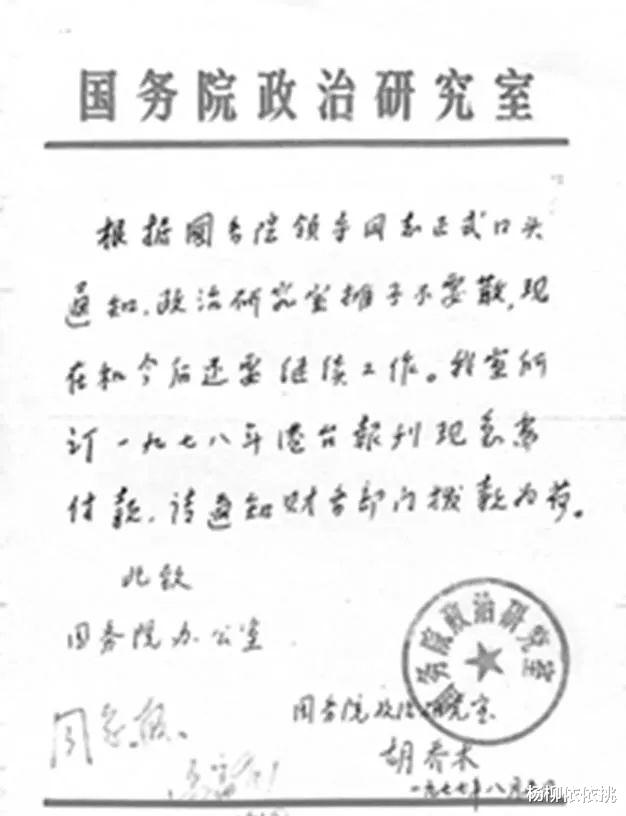 国务院政治研究室
根据國务院领导同志正式口头
通知，政治研究室摊子不要散，现
在和今后还要继续工作。我室所
订一九七八年港台報刊现急需
付款，请通知财务部门拨款为荷。
此致
国务院办公室
国务院政治研究室
国务院政治研究室
胡乔木
一九七七年八月
杨柳依依挑